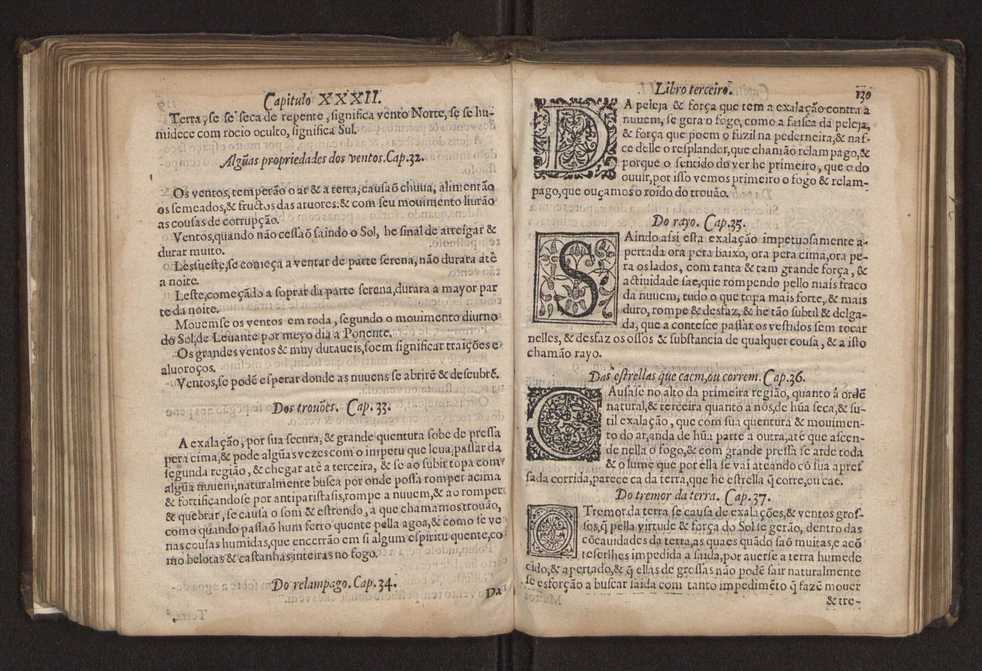 Capitulo XXXII.
Terra, se se seca de repente, significa vento Norte, se se hu-
midece com rocio oculto, significa Sul.
Algũas propriedades dos ventos. Cap. 32.
Os ventos, temperão o ar & a terra, causaõ chuua, alimentão
os semeados, & fructos das aruores: & com seu mouimento liurão
as cousas de corrupção.
Ventos, quando não cessaõ saindo o Sol, he sinal de arreigar &
durar muito.
Lessueste, se começa a ventar de parte serena, não durara atè
a noite.
Leste, começãdo a soprar da parte serena, durara a mayor par
te da noite.
Mouemse os ventos em roda, segundo o mouimento diurno
do Sol, de Leuante por meyo dia a Ponente.
Os grandes ventos & muy duraueis, soem significar traições e
aluoroços.
Ventos, se podẽ esperar donde as nuuens se abrirẽ & descubrẽ.
Dos trouões. Cap. 33.
A exalação, por sua secura, & grande quentura sobe de pressa
pera cima, & pode algũas vezes com o impetu que leua, passar da
segunda região, & chegar atè a terceira, & se ao subir topa com
algũa nuuem, naturalmente busca por onde possa romper acima
& fortificandose por antiparistasis, rompe a nuuem, & ao romper
& quebrar, se causa o som & estrondo, a que chamamos trouão,
como quando passaõ hum ferro quente pella agoa, & como se ve
nas cousas humidas, que encerrão em si algum espiritu quente, co
mo belotas & castanhas inteiras no fogo.
Do relampago. Cap. 34.
Da
Libro terceiro.
130
DA peleja & força que tem a exalação contra a
nuuem, se gera o fogo, como a faisca da peleja,
& força que poem o fuzil na pederneira, & nas-
ce delle o resplandor, que chamão relampago, &
porque o sentido do ver he primeiro, que o do
ouuir, por isso vemos primeiro o fogo & relam-
pago, que ouçamos o roido do trouão.
Do rayo. Cap. 35.
SAindo assi esta exalação impetuosamente a-
pertada ora pera baixo, ora pera cima, ora pe-
ra os lados, com tanta & tam grande força, &
actiuidade sae, que rompendo pello mais fraco
da nuuem, tudo o que topa mais forte, & mais
duro, rompe & desfaz, & he tão subtil & delga-
da, que acontesce passar os vestidos sem tocar
nelles, & desfaz os ossos & substancia de qualquer cousa, & a isto
chamão rayo.
Das estrellas que caem, ou correm. Cap. 36.
CAusase no alto da primeira região, quanto â ordẽ
natural, & terceira quanto a nòs, de hũa seca, & su-
til exalação, que com sua quentura & mouimen-
to do ar, anda de hũa parte a outra, atè que ascen-
de nella o fogo, & com grande pressa se arde toda
& o lume que por ella se vai ateando cõ sua apres
sada corrida, parece ca da terra, que he estrella q̃ corre, ou cae.
Do tremor da terra. Cap. 37.
OTremor da terra se causa de exalações, & ventos gros-
sos, q̃ pella virtude & força do Sol se gerão, dentro das
cõcauidades da terra, as quaes quãdo saõ muitas, e acõ
teserlhes impedida a saida, por auerse a terra humede
cido, & apertado, & q̃ ellas de grossas não podẽ sair naturalmente
se esforção a buscar saida com tanto impedimẽto q̃ fazẽ mouer
& tre-